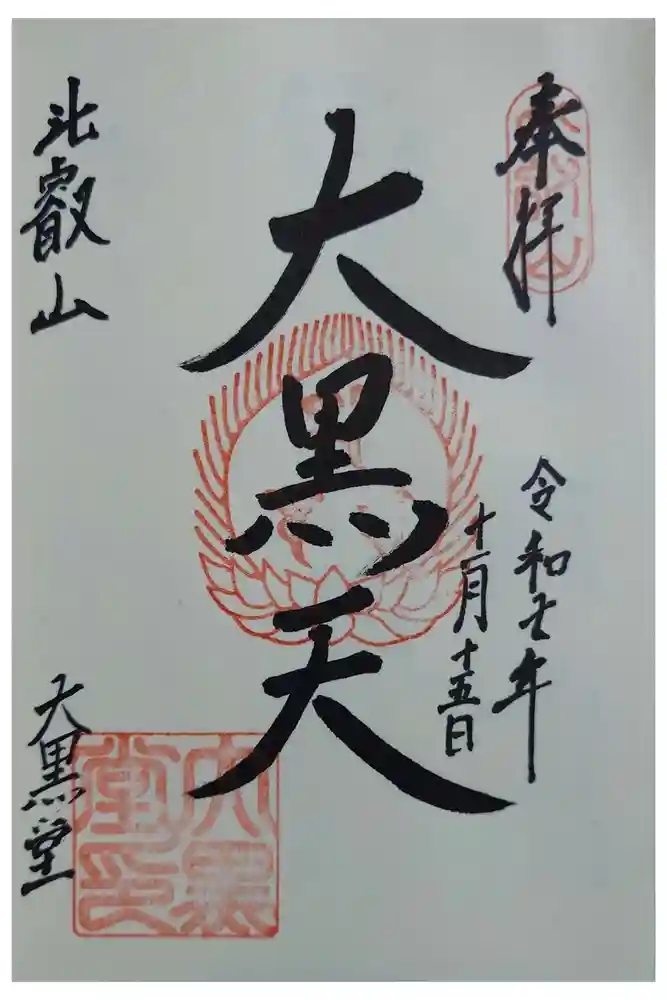 奉拝
令和七年
十一月十五日
大黒天
比叡山
大黒堂
大黒堂印